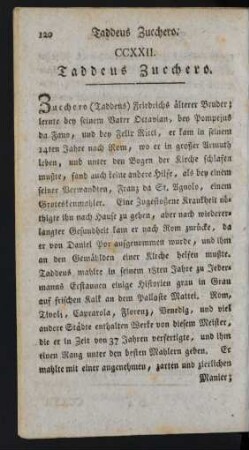 120 Taddeus Zucchero.
CCXXII.
Taddeus Zucchero.
Zucchero (Taddeus) Friedrichs älterer Bruder;
lernte bey seinem Vater Octavian, bey Pompejus
da Fano, und bey Felix Ricci, er kam in seinem
14ten Jahre nach Rom, wo er in großer Armuth
leben, und unter den Bogen der Kirche schlafen
mußte, fand auch keine andere Hilfe, als bey einem
seiner Verwandten, Franz da St. Agnolo, einem
Grotteskenmahler. Eine Zugestoßene Krankheit nö-
thigte ihn nach Hause zu gehen, aber nach wiederer-
langter Gesundheit kam er nach Rom zurücke, da
er von Daniel Por aufgenommen wurde, und ihm
an den Gemählden einer Kirche helfen mußte.
Taddeus mahlte in seinem 18ten Jahre zu Jeder-
manns Erstaunen einige Historien grau in Grau
auf frischen Kalk an dem Pallaste Mattei. Rom,
Tivoli, Caprarola, Florenz, Venedig, und viel
andere Städte enthalten Werke von diesem Meister,
die er in Zeit von 37 Jahren verfertigte, und ihm
einen Rang unter den besten Mahlern geben. Er
mahlte mit einer angenehmen, zarten und zierlichen
Manier;